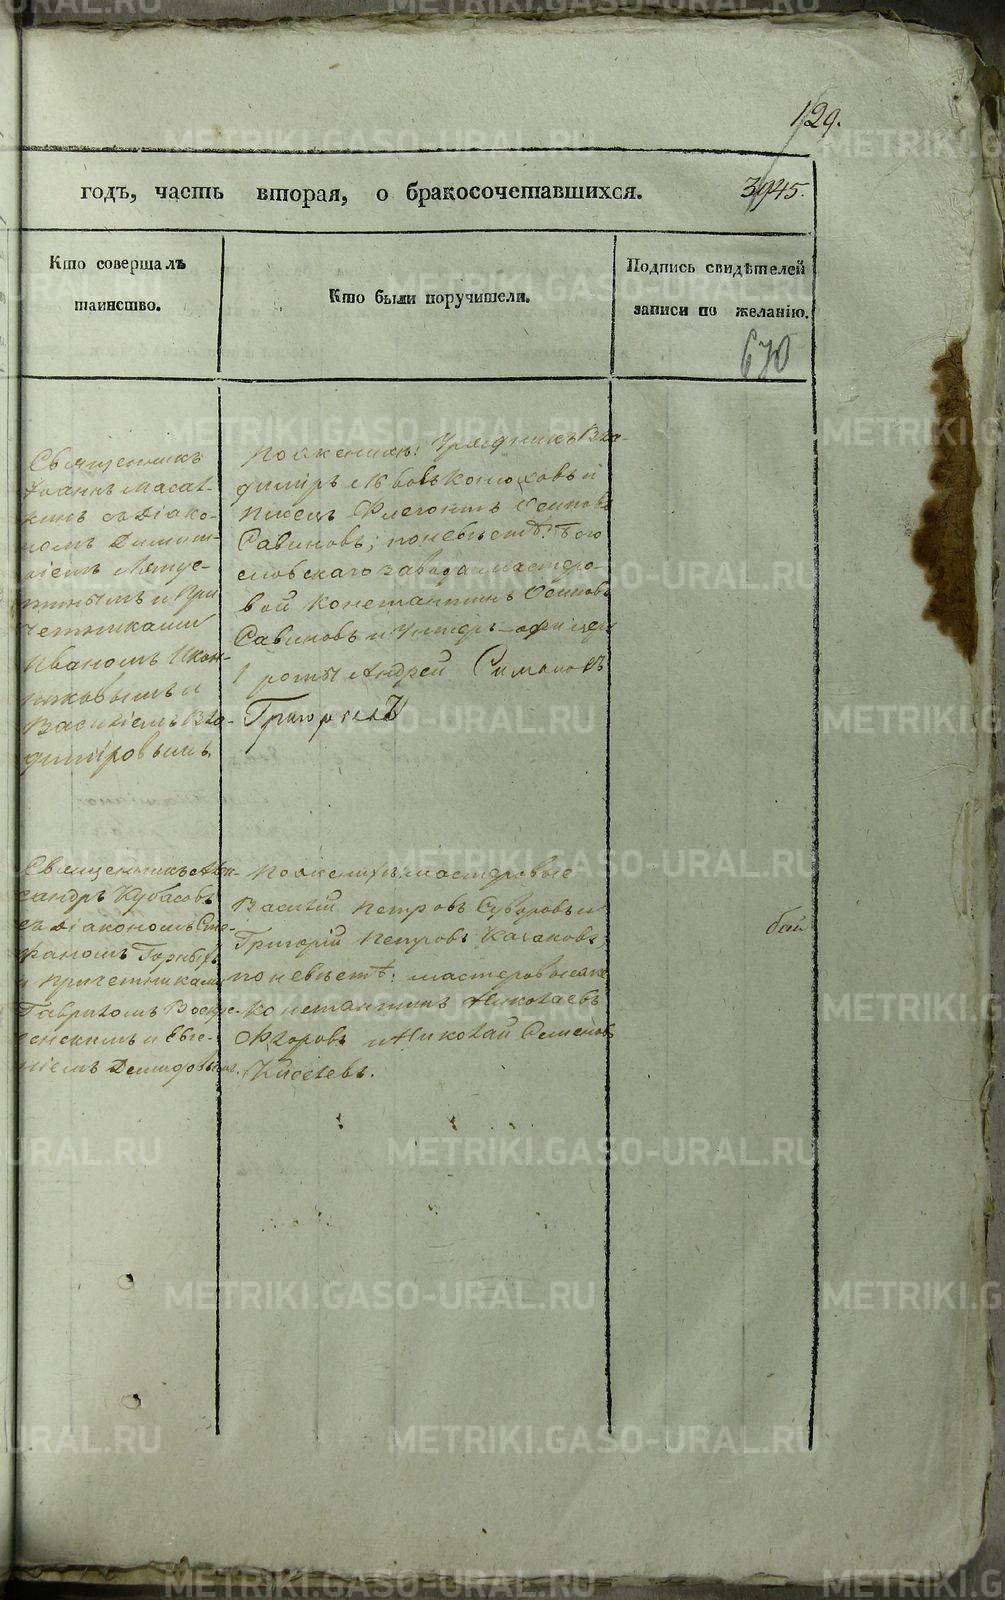 129.
годъ, часть вторая, о бракосочетавшихся.
3945.
Кто совершалъ
таинство.
Кто были поручители.
Подпись свидѣтелей
записи по желанію.
670
Священникъ
Іоаннъ
кинъ съ Діако-
номъ Димит-
ріемъ
и При
четниками
Иваномъ Икон-
никовымъ и
Василіемъ Вла-
диміровымъ
По женихѣ: Урядникъ Вла-
диміръ Львовъ Конюховъ и
писецъ Флегонтъ Осиповъ
Савиновъ; по невѣстѣ: Бого
словскаго завода мастеро-
вой Константинъ Осиповъ
Савиновъ и Унтеръ-офицеръ
1 роты Андрей Симановъ
Священникъ Алек-
сандръ Кубасовъ
съ Діакономъ Сте-
фаномъ Горныхъ
и причетниками
Гавріиломъ Воскре-
сенскимъ и Евге-
ніемъ Демидовымъ.
По женихѣ мастеровые
Василій Петровъ Суворовъ и
Григорій Петровъ Казаковъ,
по невѣстѣ: мастеровые
Константинъ Николаевъ
Ѳедоровъ и Николай Семеновъ
Киселевъ.
METRIKI.GASO-URAL.RU